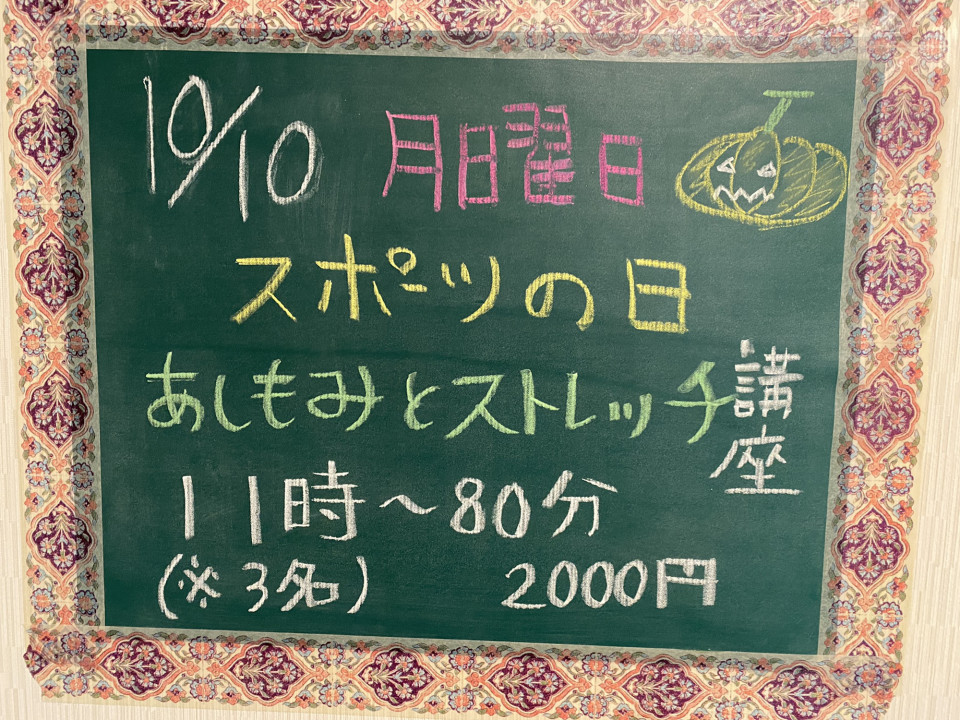 10/10 月曜日
スポーツの日
あしもみとストレッチ講座
11時～80分
(※3名) 2000円